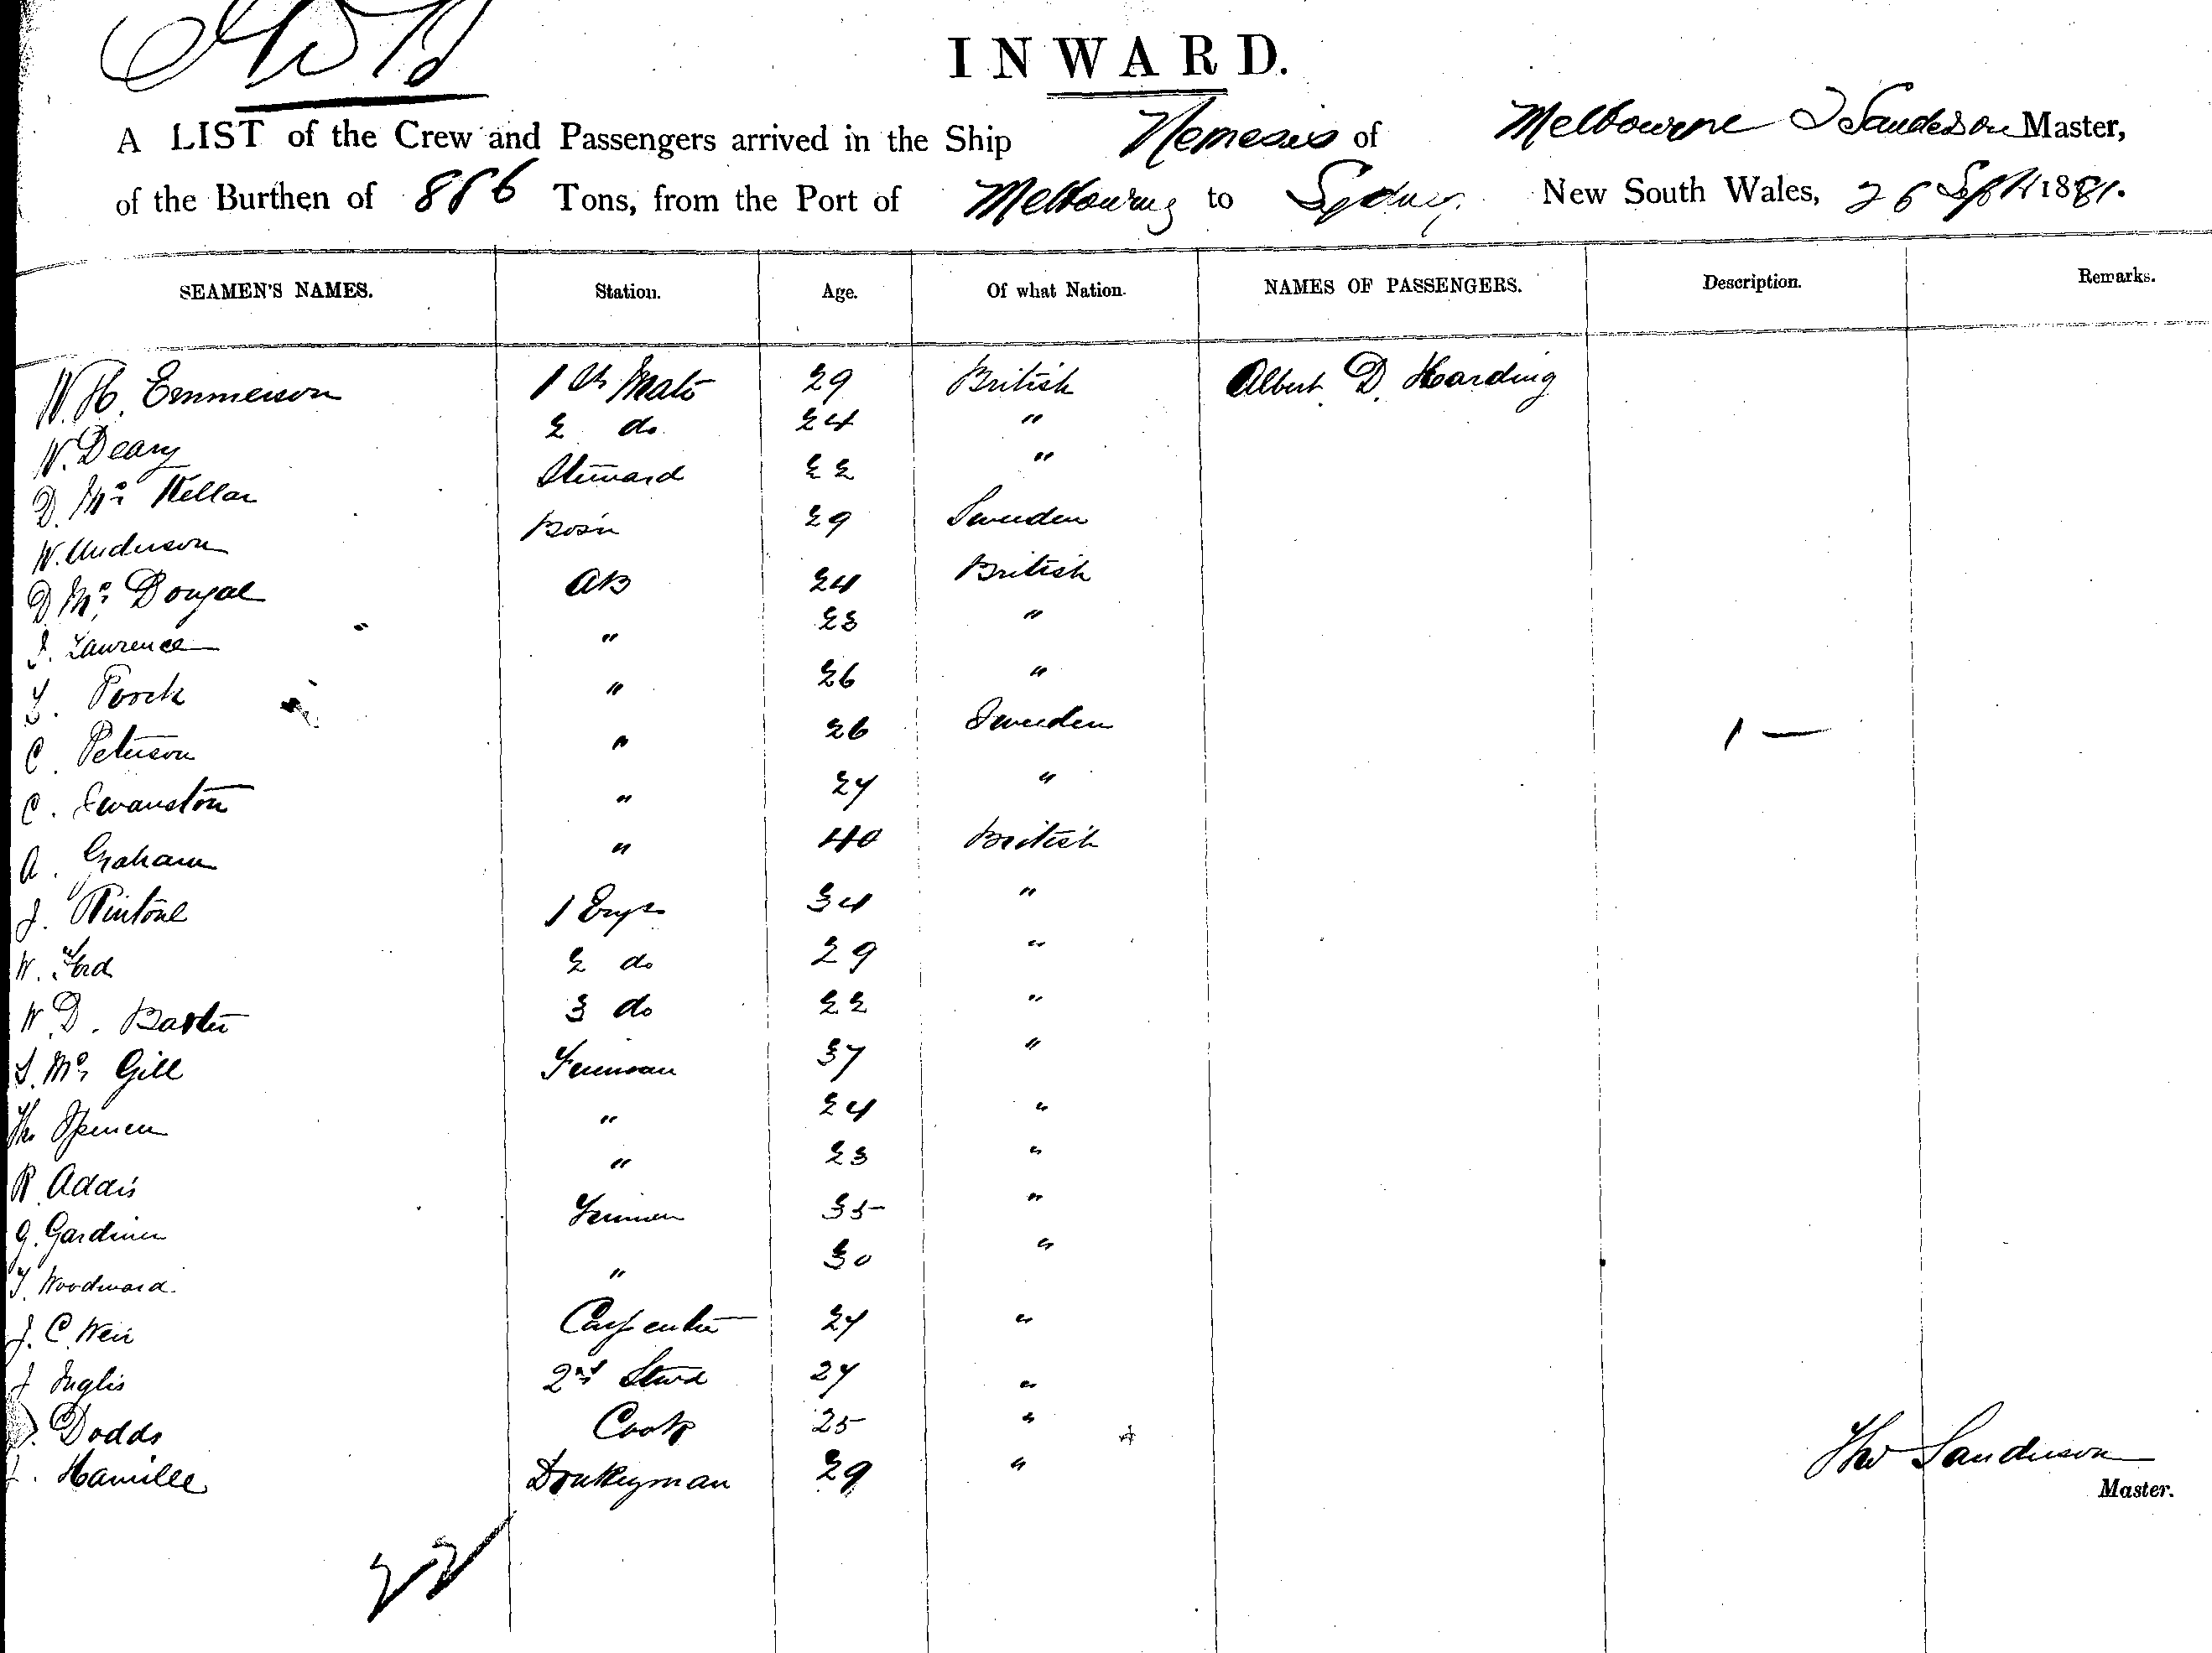 INWARD.
A LIST of the Crew and Passengers arrived in the Ship Nemesis of Melbourne T Sanderson Master,
of the Burthen of 886 Tons, from the Port of Melbourne to Sydney, New South Wales, 26 Sept 1881.
SEAMEN'S NAMES. Station. Age. Of what Nation. NAMES OF PASSENGERS. Description. Remarks.
W. H. Emmerson 1st Mate 29 British Albert D. Harding
W. Deary 2 do 24 "
D. Mc Kellar Steward 22 "
W. Anderson Bosn 29 Sweeden
D Mc Dougal AB 24 British
J. Lawrence " 23 "
Porch " 26 "
C. Peterson " 26 Sweeden 1 —
C. Swanston " 27 "
A. Graham " 40 British
J. 1 Engr 34 "
W. Ford 2 do 29 "
W. D. Baxter 3 do 22 "
Mc Gill Fireman 37 "
Thos Spencer " 24 "
R. Addis " 23 "
G. Gardiner Trimmer 35 "
T. Woodward " 30 "
J. C. Weir Carpenter 27 "
J Inglis 2nd Stwd 27 "
Dodds Cook 25 "
Hamille Donkeyman 29 "
Thos Sanderson
Master.
22